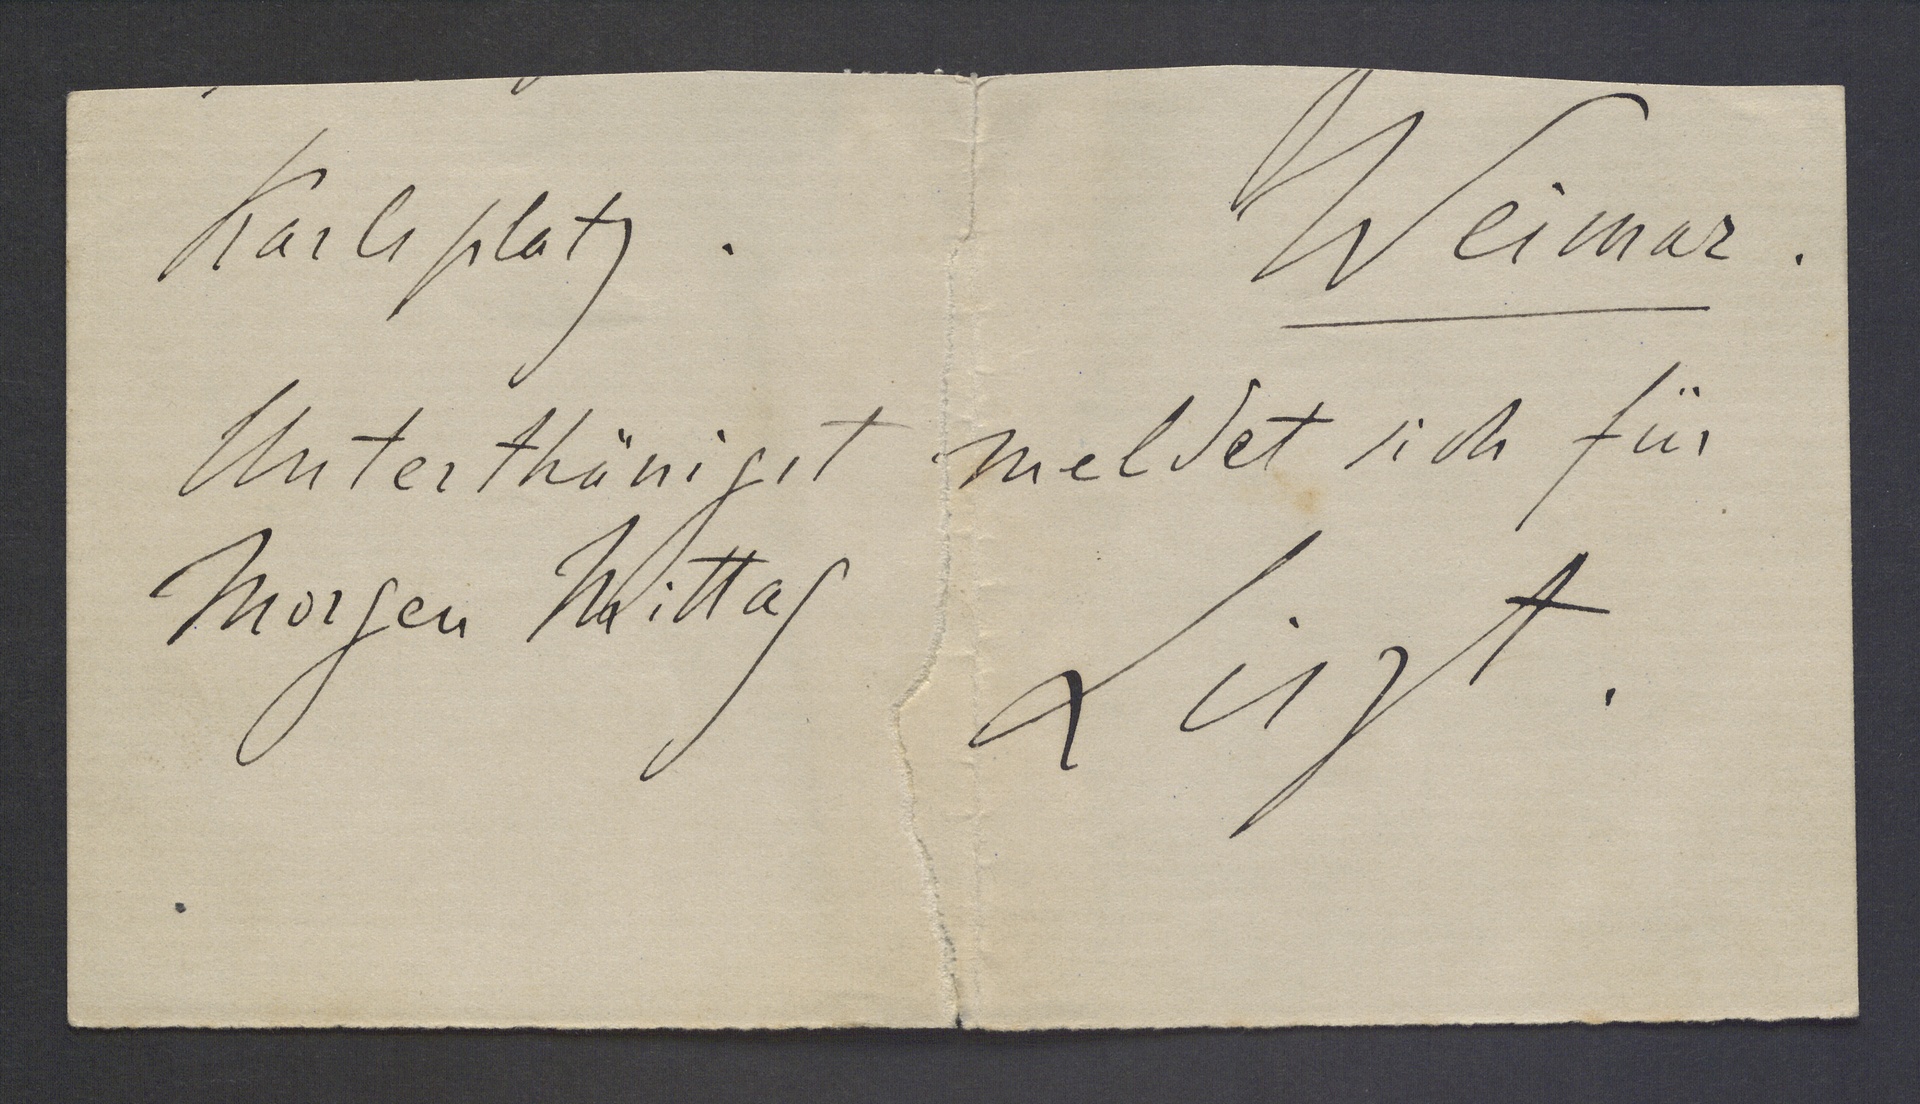 Karlsplatz. Weimar.
Unterthänigst meldet sich für
Morgen Mittag
Liszt.